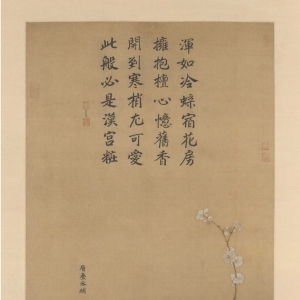 渾如冷蝶宿花房
擁抱檀心憶舊香
開到寒梢尤可愛
此般必是漢宮粧
層疊冰綃